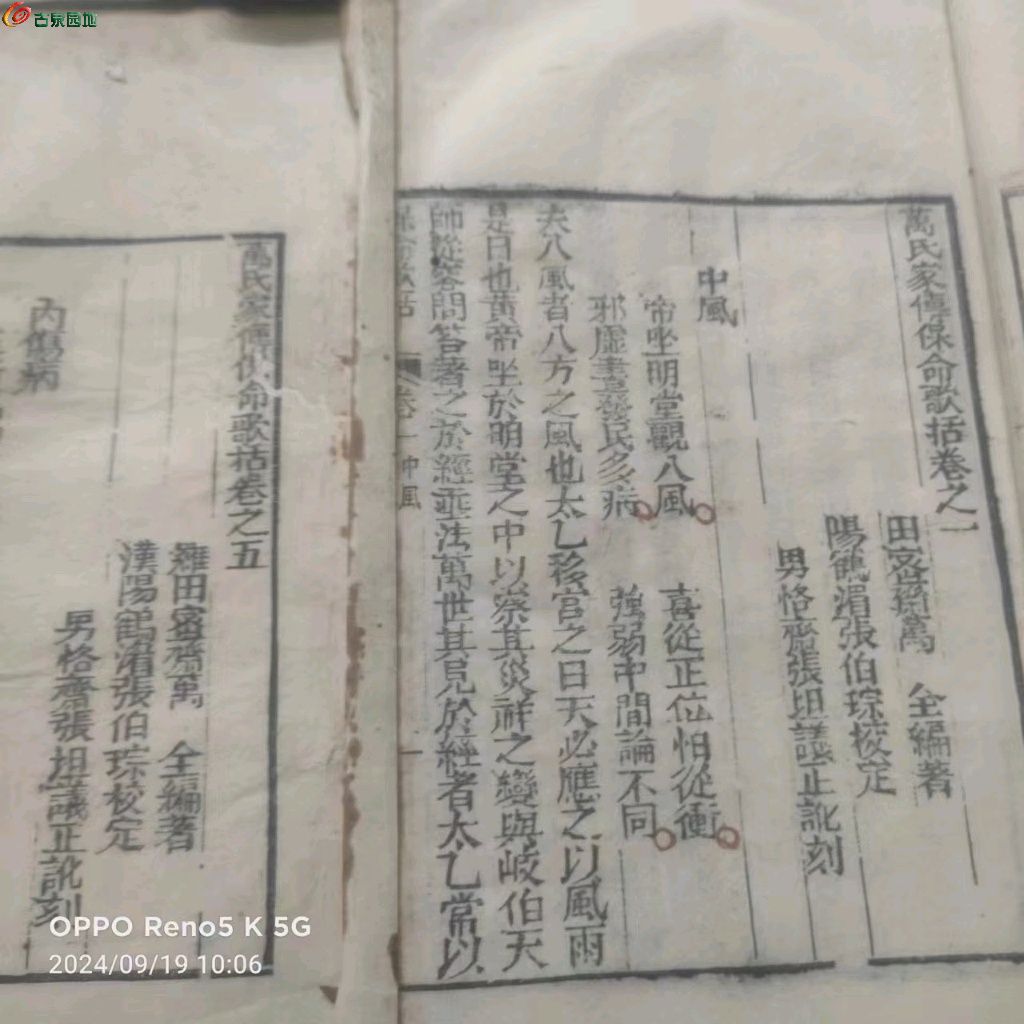 古泉园地
萬氏家傳保命歌括卷之一
田密齋萬 全編著
陽鶴湄張伯琮校定
男格齋張坦議正訛刻
中風
帝坐明堂觀八風 喜從正位怕從衝
邪虛晝發民多病 強弱中間論不同
夫八風者八方之風也太乙移宮之日天必應之以風雨
是日也黃帝坐於明堂之中以察其災祥之變與岐伯天
師從容問答著之於經垂法萬世其見於經者太乙常以
保命歌括 卷一 中風 一
萬氏家傳保命歌括卷之五
羅田密齋萬 全編著
漢陽鶴湄張伯琮校定
男格齋張坦議正訛刻
內傷病
OPPO Reno5 K 5G
2024/09/19 10:06